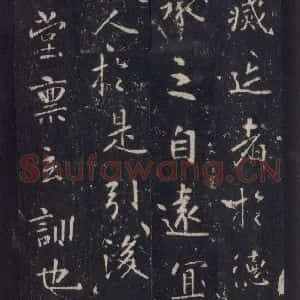 者於德
承之自遠宜
人於是引後
堂稟玄訓也
Shufawang.CN